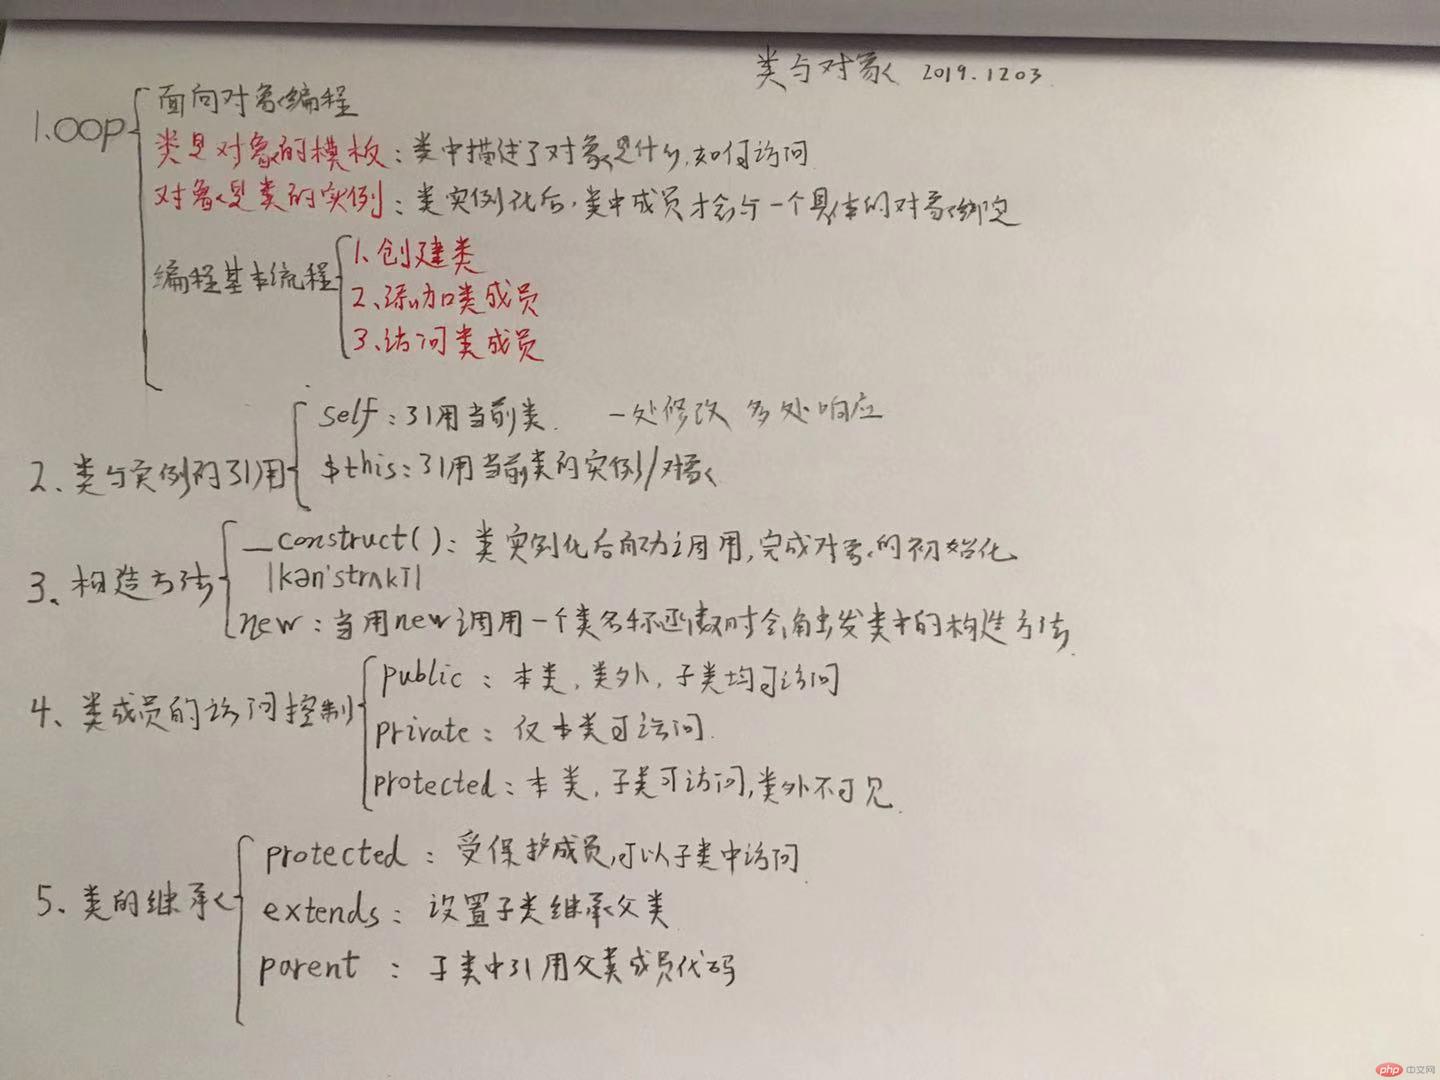 类与对象 2019.1203
1.OOP
面向对象编程
类是对象的模板：类中描述了对象是什么,如何访问
对象是类的实例：类实例化后,类中成员才会与一个具体的对象绑定
编程基本流程
1、创建类
2、添加类成员
3、访问类成员
2、类与实例的引用
self：引用当前类. 一处修改 多处响应
$this：引用当前类的实例/对象
3、构造方法
__construct()：类实例化后自动调用,完成对象的初始化
|kən'strʌkt|
new：当用new调用一个类名称函数时会触发类中的构造方法
4、类成员的访问控制
public：本类,类外,子类均可访问
private：仅本类可访问.
protected：本类,子类可访问,类外不可见
5、类的继承
protected：受保护成员,可以子类中访问
extends：设置子类继承父类
parent：子类中引用父类成员代码
php 中文网